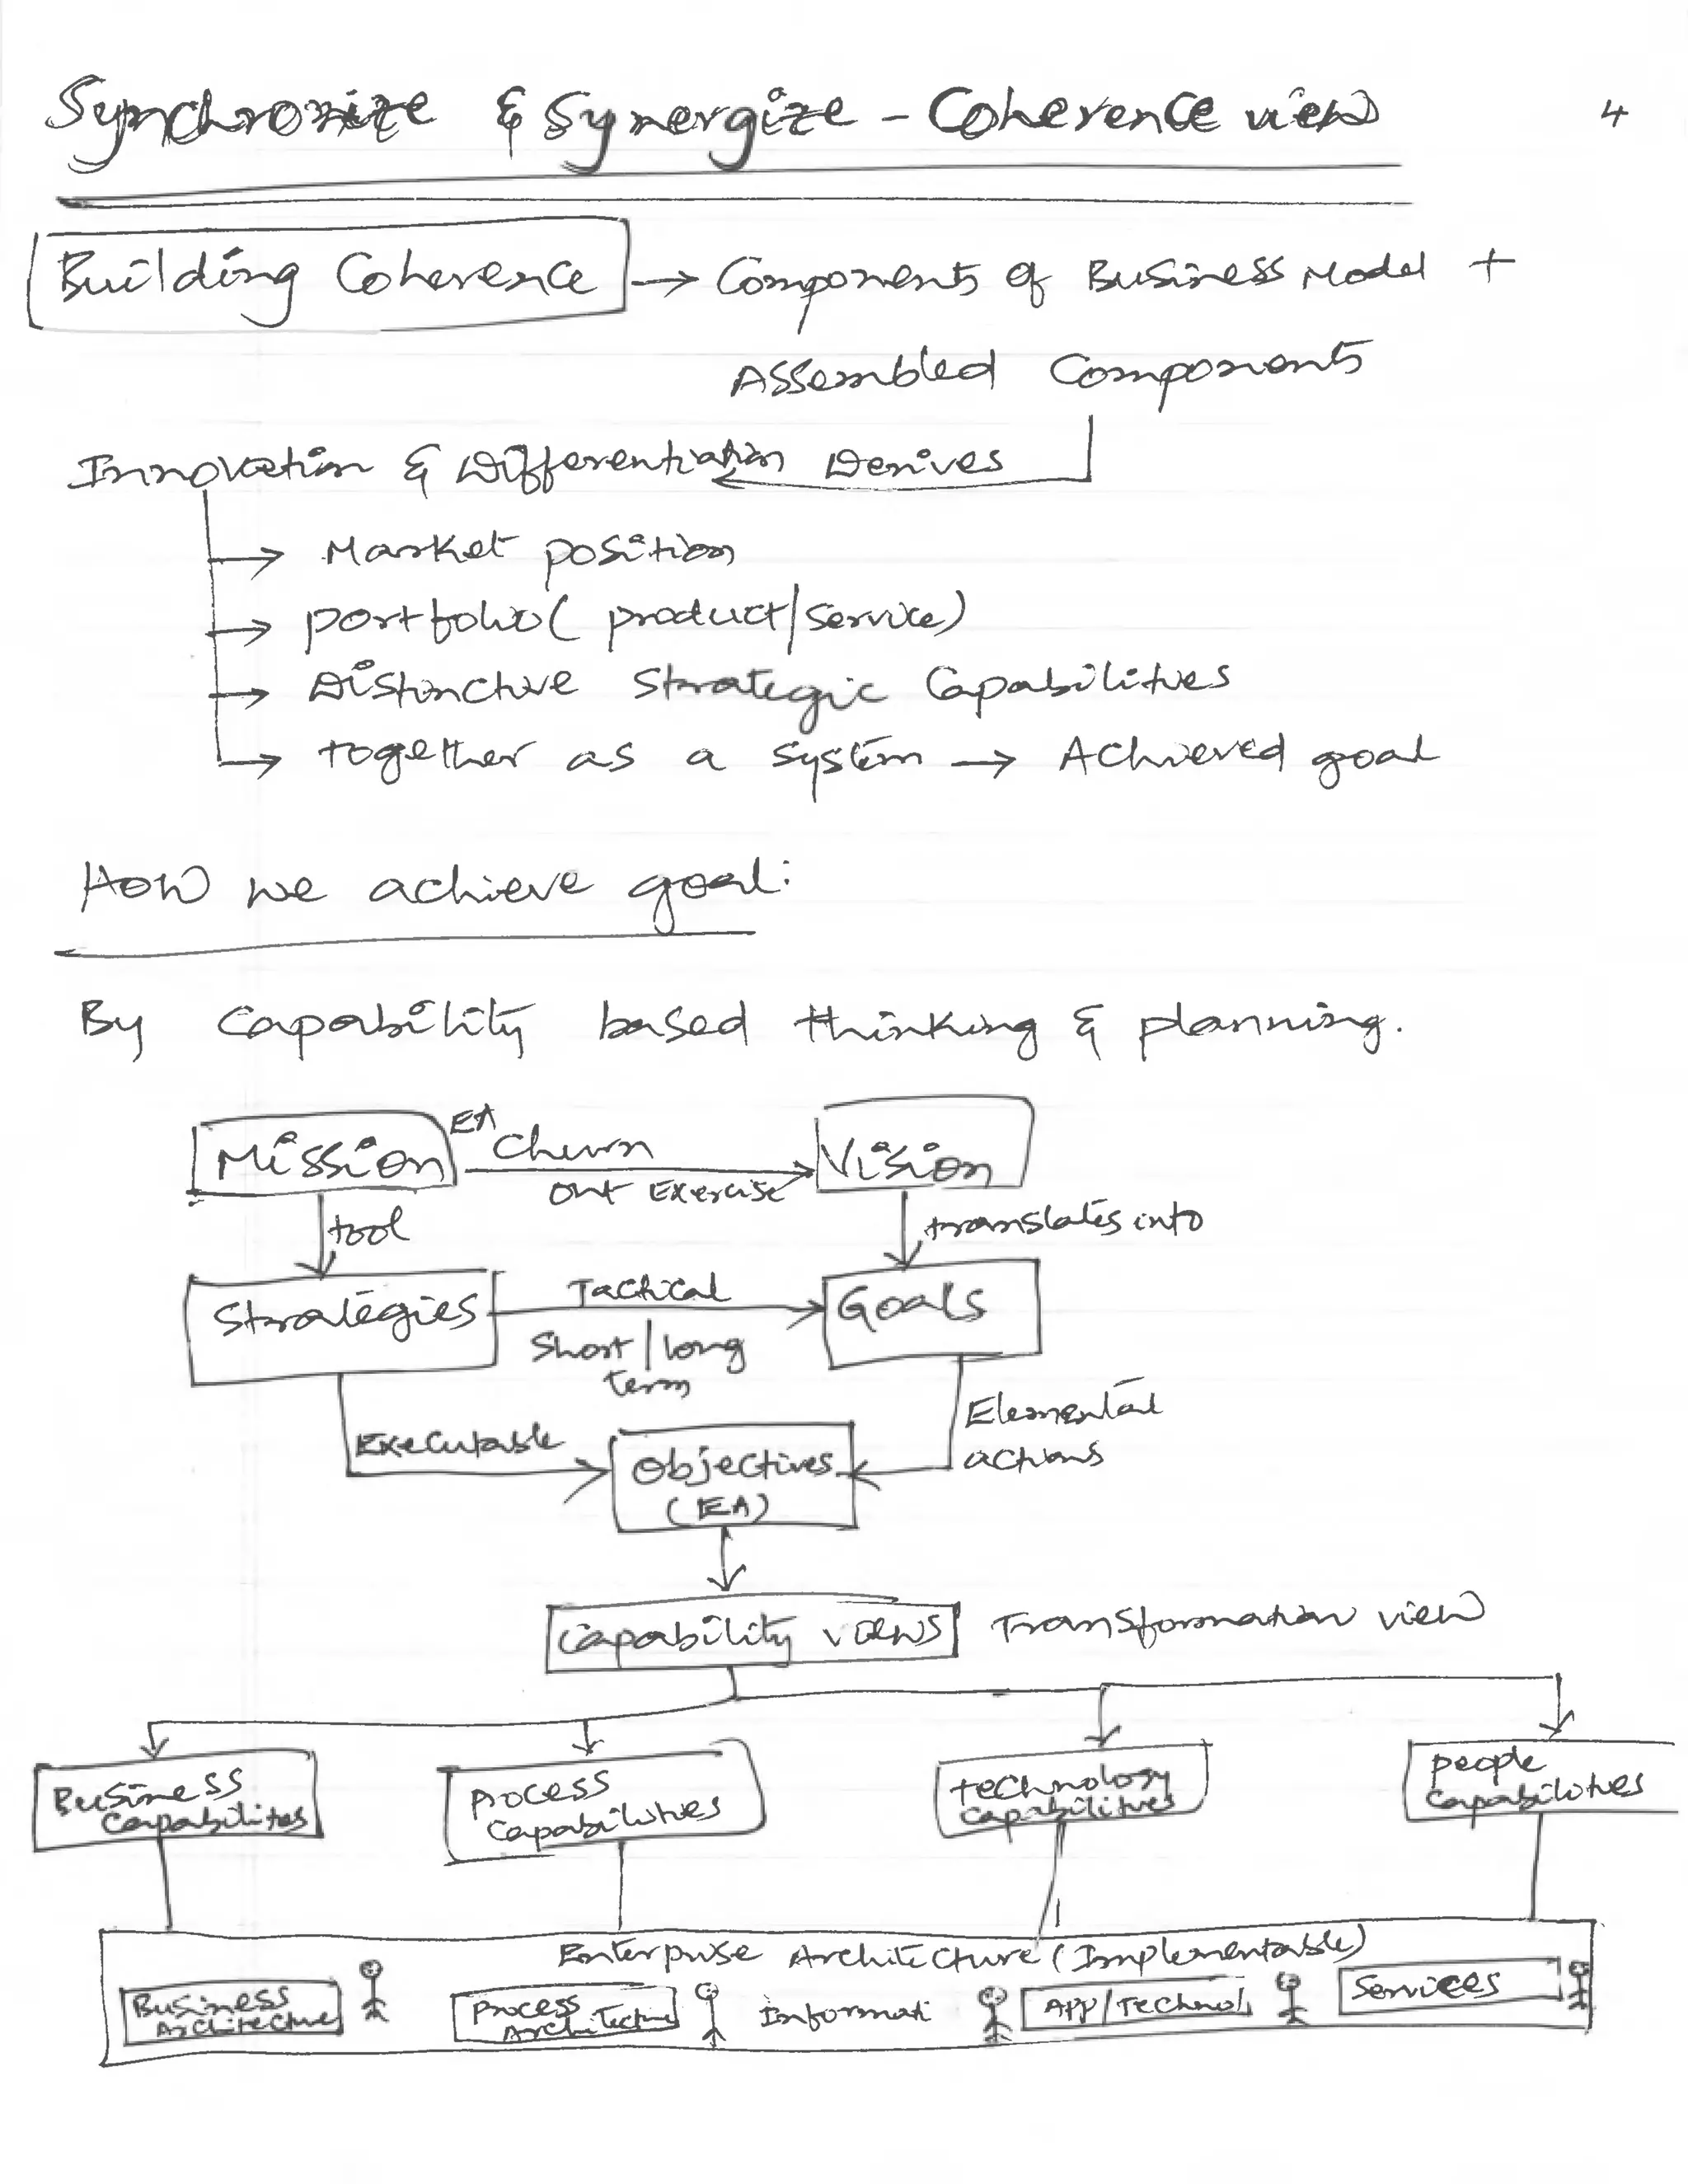 Synchronize & Synergize - Coherence view
4
Building Coherence → Components of Business Model +
Assembled Components
Innovation & Differentiation Derives
→ Market position
→ portfolio ( product/service)
→ Distinctive Strategic Capabilities
→ together as a system → Achieved goal
How we achieve goal:
By capability based thinking & planning.
Mission
EA Churn
Out Exercise
Vision
tool
translates into
Strategies
Tactical
Goals
Short/long
term
Executable
Elemental
actions
Objectives
(EA)
Capability views
Transformation view
Business
Capabilities
Process
Capabilities
technology
capabilities
people
capabilities
Enterprise Architecture (Implementable)
Business
Architecture
Process
Architecture
Informati
App/Technol
Services